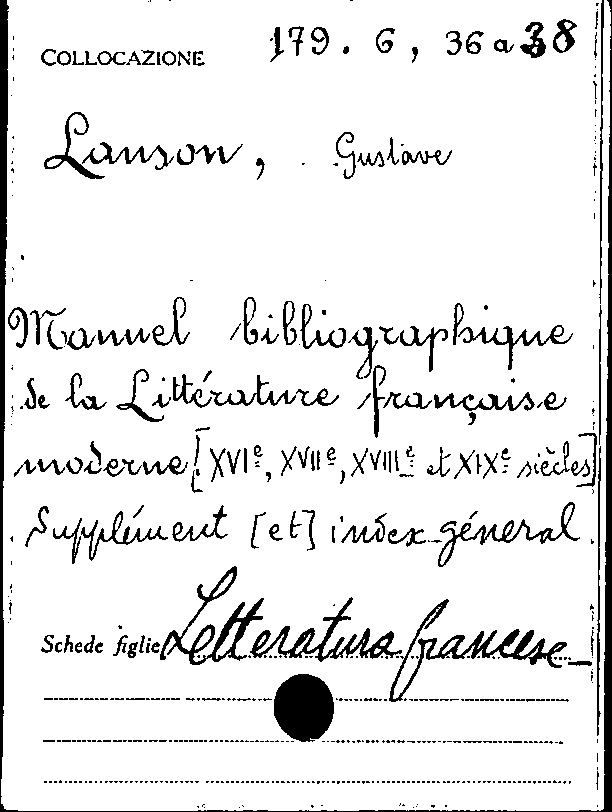 COLLOCAZIONE 179. 6, 36 a 38
Lanson, Gustave
Manuel bibliographique
de la Littérature française
moderne [XVIe, XVIIe, XVIIIe et XIXe siècles]
Supplément [et] index général.
Schede figlie Letteratura francese